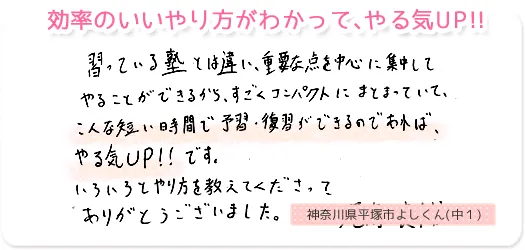 効率のいいやり方がわかって、やる気UP!!
習っている塾とは違い、重要な点を中心に集中して
やることができるから、すごくコンパクトにまとまっていて、
こんな短い時間で予習・復習ができるのであれば、
やる気UP!!です。
いろいろとやり方を教えてくださって
ありがとうございました。
神奈川県平塚市よしくん(中1)